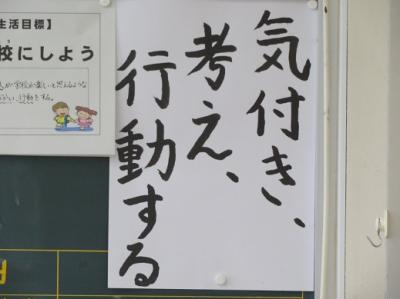 気付き、
考え、
行動する
生活目標】
校にしよう